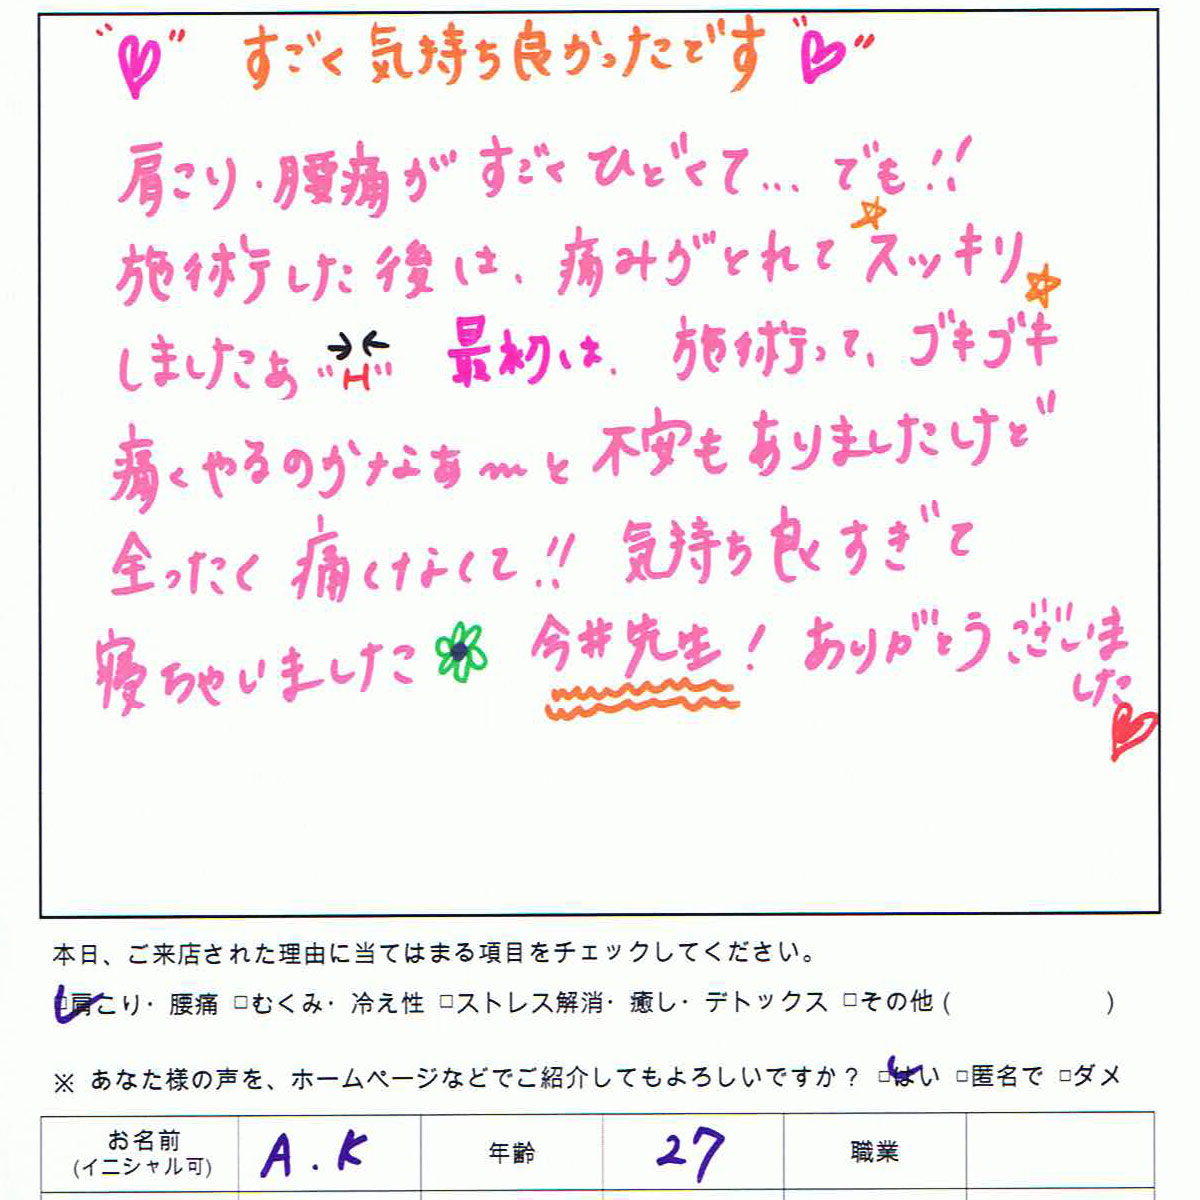 すごく気持ち良かったです
肩こり・腰痛がすごくひどくて… でも!!
施術した後は、痛みがとれてスッキリ
しましたぁ 最初は、施術って、ゴキゴキ
痛くやるのかなぁ〜と不安もありましたけど
全ったく痛くなくて!! 気持ち良すぎて
寝ちゃいました 今井先生! ありがとうございま
した
本日、ご来店された理由に当てはまる項目をチェックしてください。
□肩こり・腰痛 □むくみ・冷え性 □ストレス解消・癒し・デトックス □その他 ( )
※ あなた様の声を、ホームページなどでご紹介してもよろしいですか? □はい □匿名で □ダメ
お名前 A.K 年齢 27 職業
(イニシャル可)